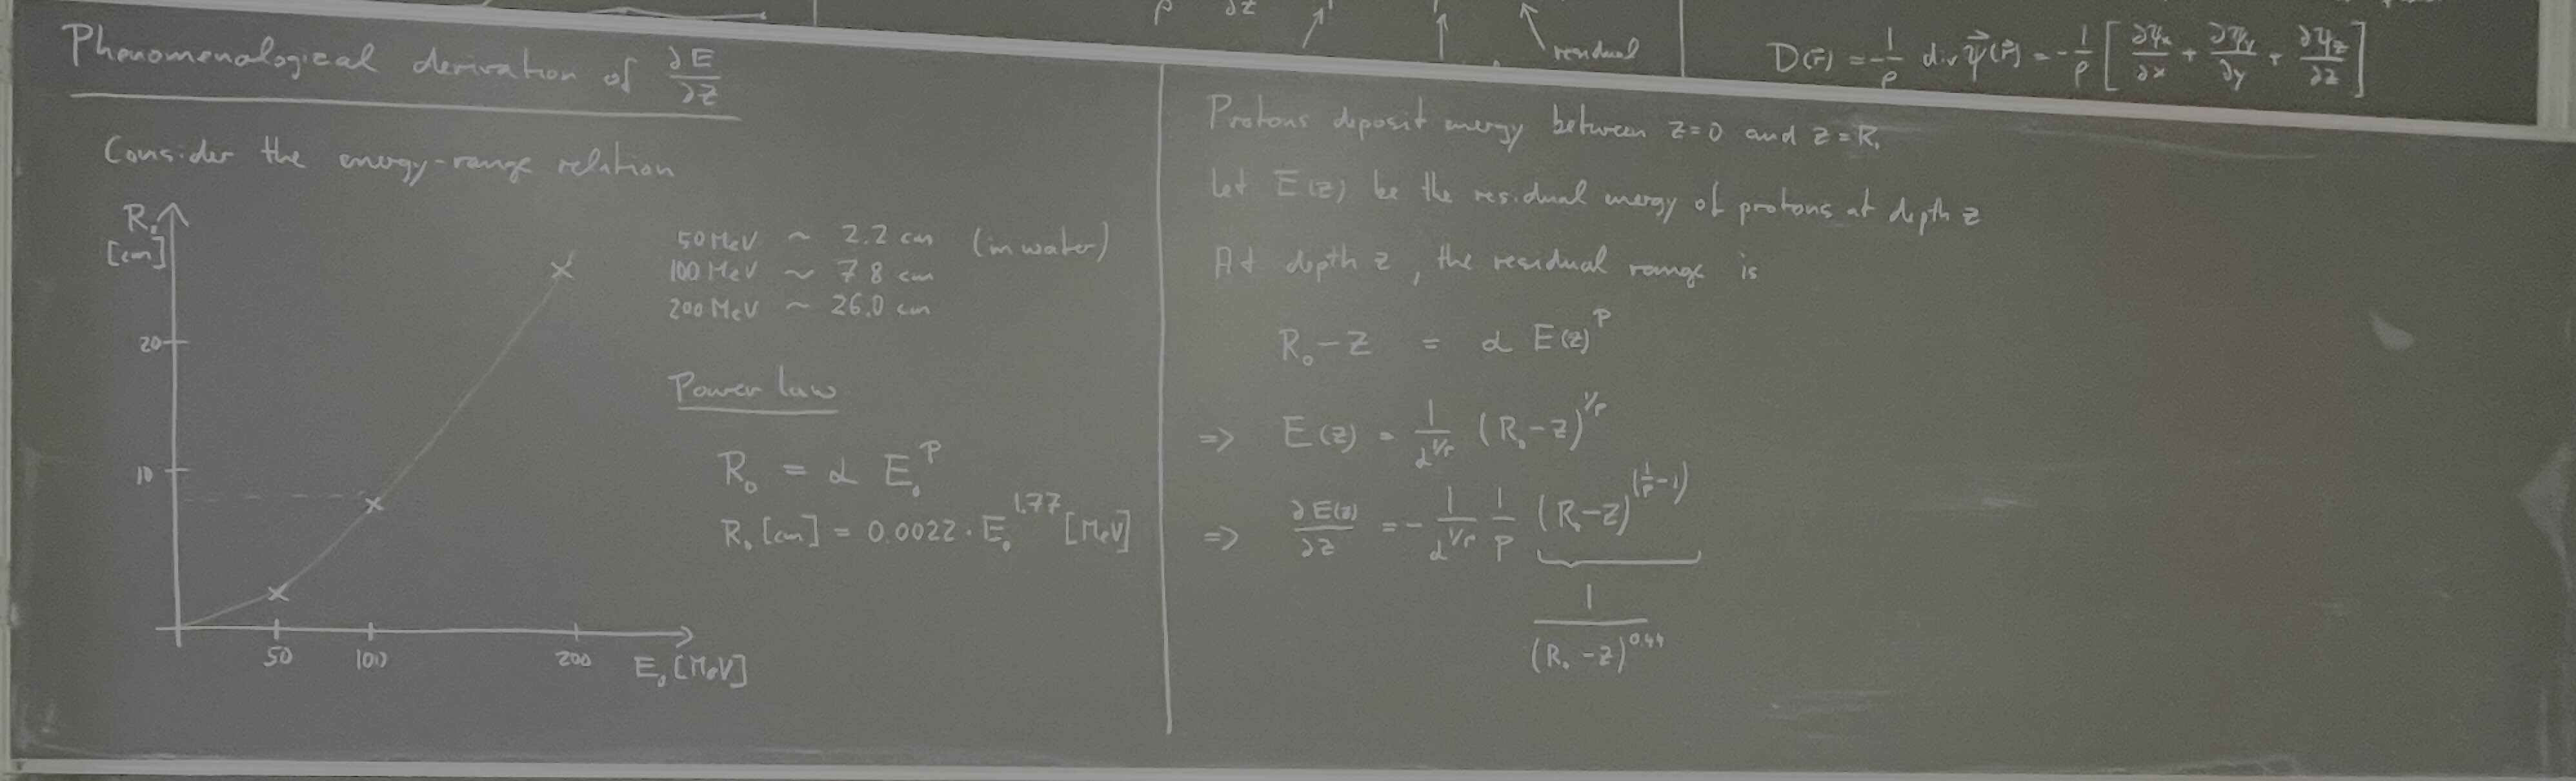 ρ ∂z
residual
D(r⃗) = -1/ρ div ψ⃗(r⃗) = -1/ρ [∂ψx/∂x + ∂ψy/∂y + ∂ψz/∂z]
Phenomenological derivation of ∂E/∂z
Consider the energy-range relation
R₀
[cm]
20
10
50 100 200 E₀ [MeV]
50 MeV ~ 2.2 cm (in water)
100 MeV ~ 7.8 cm
200 MeV ~ 26.0 cm
Power law
R₀ = α E₀^p
R₀ [cm] = 0.0022 · E₀^1.77 [MeV]
Protons deposit energy between z=0 and z=R₀
Let E(z) be the residual energy of protons at depth z
At depth z, the residual range is
R₀-z = α E(z)^p
=> E(z) = 1/α^(1/p) (R₀-z)^(1/p)
=> ∂E(z)/∂z = - 1/α^(1/p) 1/p (R₀-z)^(1/p-1)
1/(R₀-z)^0.44